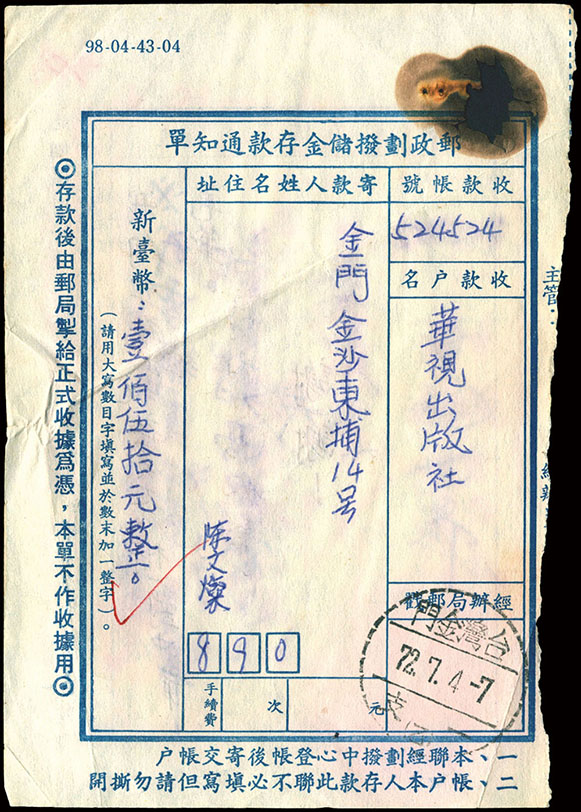 98-04-43-04
郵政劃撥儲金存款通知單
收款帳號
524524
收款户名
華視出版社
經辦局郵戳
台灣金門
72.7.4-7
寄款人姓名住址
金門金沙東埔14号
陳文燦
890
新臺幣：壹佰伍拾元整。
（請用大寫數目字填寫並於數末加一整字）。
手續費
次
元
◎存款後由郵局掣給正式收據爲憑，本單不作收據用◎
一、本聯經劃撥中心登帳後寄交帳户
二、帳户本人存款此聯不必填寫但請勿撕開
主管：